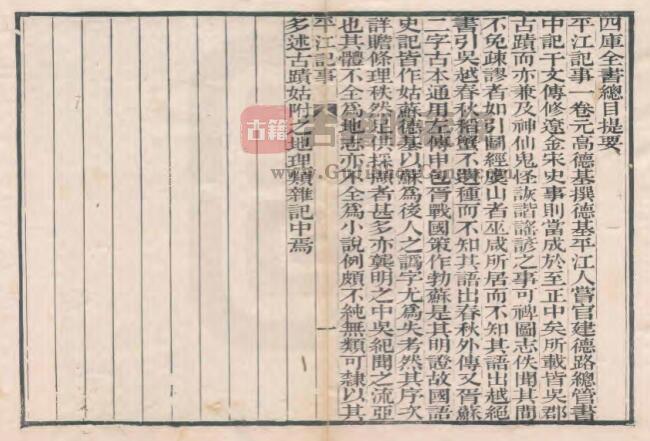 四庫全書總目提要
平江記事一卷元高德基撰德基平江人嘗官建德路總管書
中記干文傳修遼金宋史事則當成於至正中矣所載皆吳郡
古蹟而亦兼及神仙鬼怪詼諧謠諺之事可裨圖志佚聞其間
不免疎謬者如引圖經虞山者巫咸所居而不知其語出越絕
書引吳越春秋稻蟹不遺種而不知其語出春秋外傳又胥蘇
二字古本通用左傳申包胥戰國策作勃蘇是其明證故國語
史記皆作姑蘇德基以蘇爲後人之譌字尤爲失考然其序次
詳贍條理秩然足供採擷者甚多亦龔明之中吳紀聞之流亞
也其體不全爲地志亦不全爲小說例頗不純無類可隸以其
平江記事 一
多述古蹟姑附之地理類雜記中焉
古籍